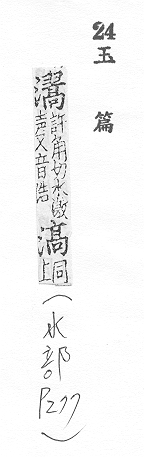 24 玉篇
許角切水激
声又音浩
滈
同上
(水部 P277)